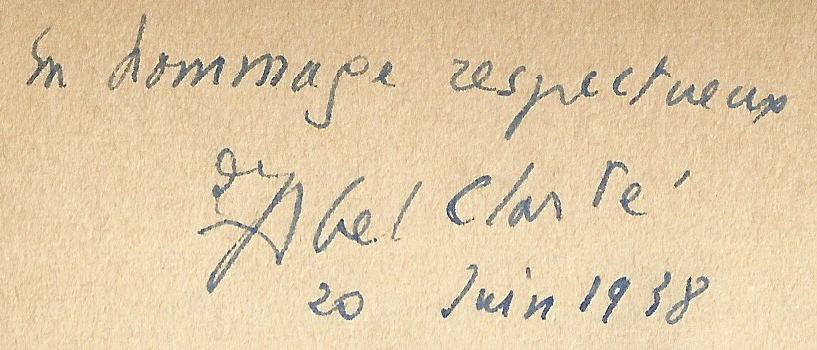 En hommage respectueux
J. Abel Clarté
20 Juin 1938